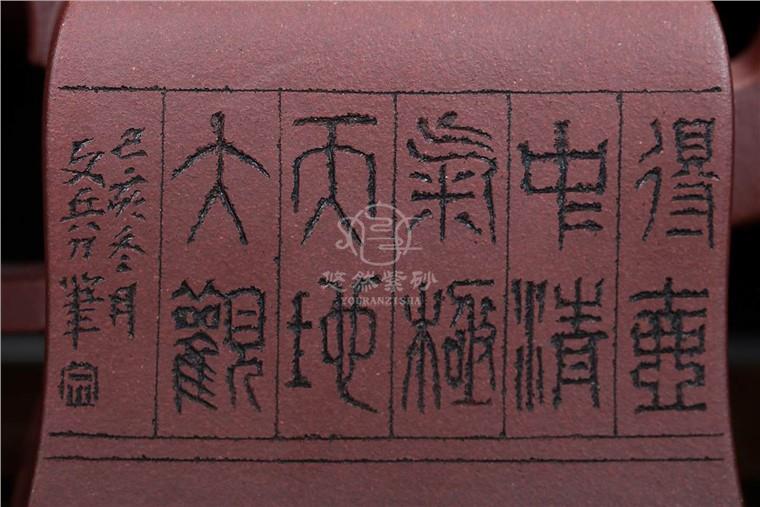 得壶
中清
气極
天地
大觀
己亥叁月
文兵分筆
悠然紫砂
YOURANZISHA